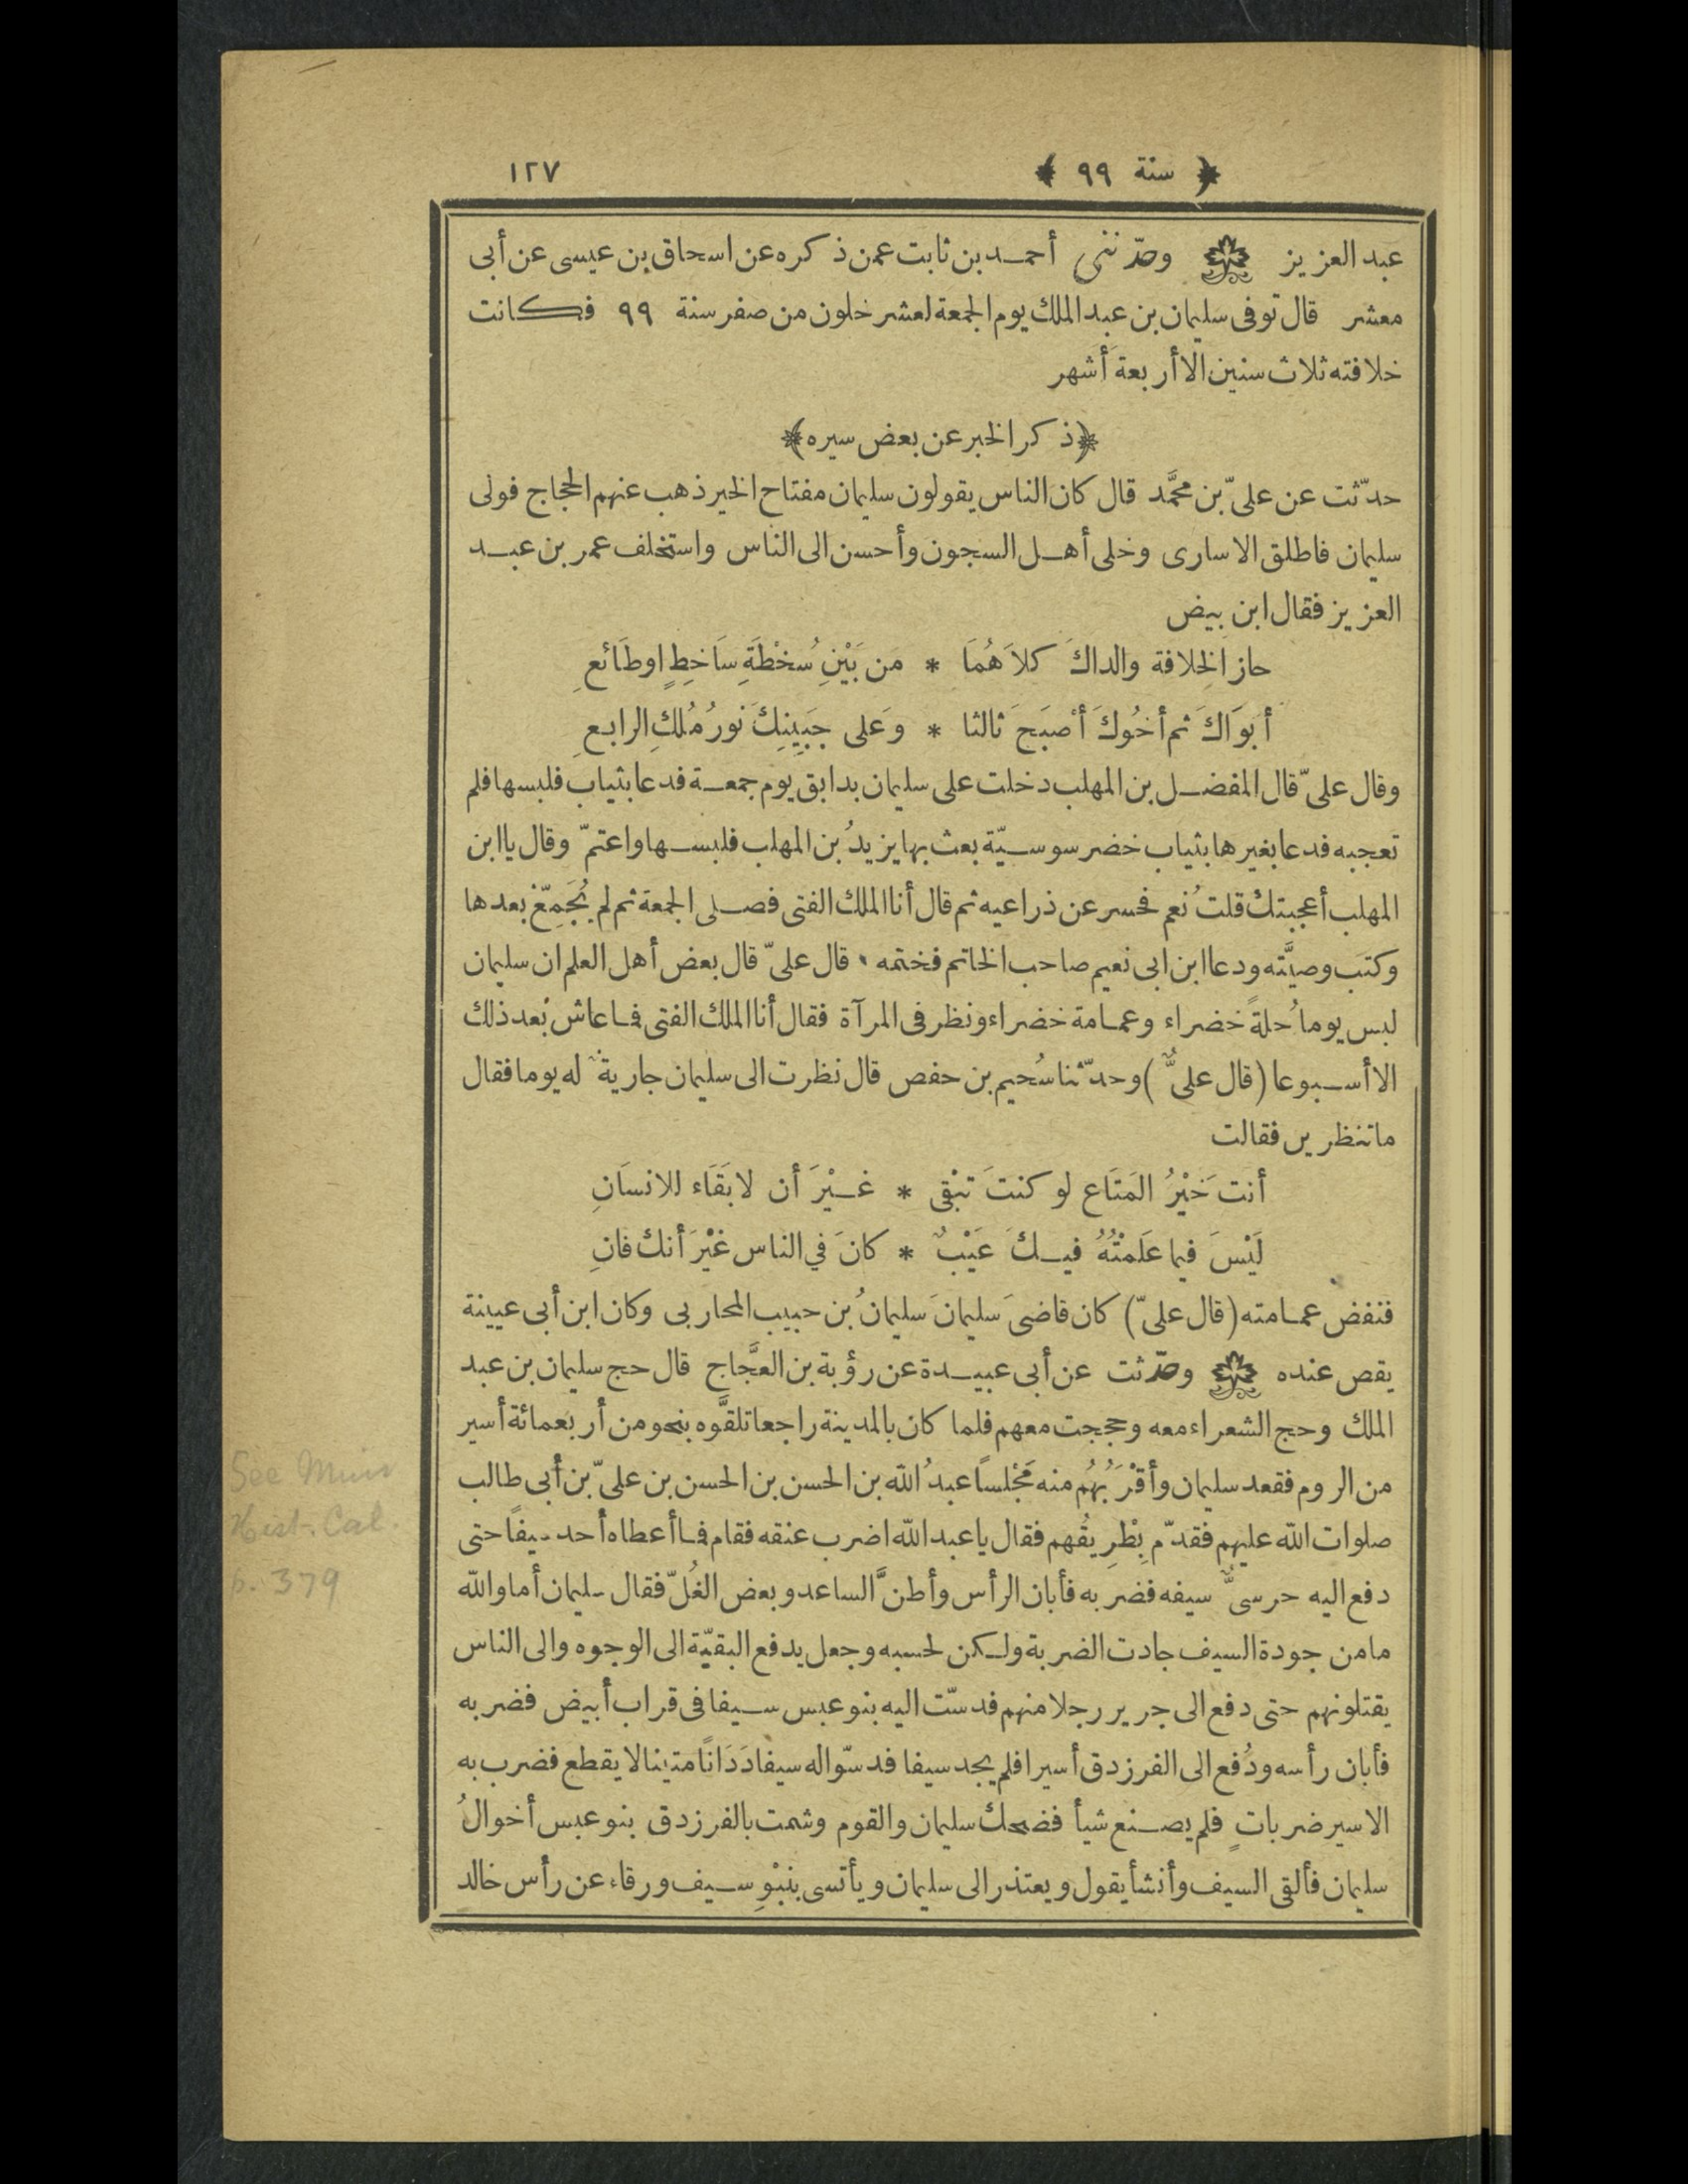 ﴿ سنة ٩٩ ﴾ ١٢٧
عبد العزيز وحدّثنى أحمد بن ثابت عمن ذكره عن اسحاق بن عيسى عن أبى
معشر قال توفى سليمان بن عبد الملك يوم الجمعة لعشر خلون من صفر سنة ٩٩ فكانت
خلافته ثلاث سنين الا أربعة أشهر
﴿ذكر الخبر عن بعض سيره﴾
حدّثت عن علىّ بن محمَّد قال كان الناس يقولون سليمان مفتاح الخير ذهب عنهم الحجاج فولى
سليمان فاطلق الاسارى وخلى أهل السجون وأحسن الى الناس واستخلف عمر بن عبد
العزيز فقال ابن بيض
حاز الخِلافة والداكَ كلاَهُمَا * مَن بَيْنِ سُخْطَةِ سَاخِطٍ اوطَائعِ
أبَوَاكَ ثم أخُوكَ أصْبَحَ ثالثا * وَعَلى جَبِينِكَ نورُ مُلكِ الرابعِ
وقال علىّ قال المفضل بن المهلب دخلت على سليمان بدابق يوم جمعة فدعا بثياب فلبسها فلم
تعجبه فدعا بغيرها بثياب خضر سوسيّة بعث بها يزيدُ بن المهلب فلبسها واعتمّ وقال يا ابن
المهلب أعجبتك قلتُ نعم فحسر عن ذراعيه ثم قال أنا الملك الفتى فصلى الجمعة ثم لم يُجَمِّع بعدها
وكتب وصيَّته ودعا ابن ابى نعيم صاحب الخاتم فختمه ٠ قال علىّ قال بعض أهل العلم ان سليمان
لبس يوما حُلةً خضراء وعمامة خضراء ونظر فى المرآة فقال أنا الملك الفتى فما عاش بعد ذلك
الا أسبوعا (قال علىٌّ) وحدّثنا سُحيم بن حفص قال نظرت الى سليمان جاريةٌ له يوما فقال
ما تنظرين فقالت
أنت خَيْرُ المَتَاع لو كنتَ تبْقى * غيْرَ أن لا بَقَاء للانسَانِ
لَيْسَ فيما عَلَمْتُهُ فيكَ عَيْبٌ * كانَ في الناس غيْرَ أنك فانِ
فنفض عمامته (قال علىّ) كان قاضىَ سليمانَ سليمانُ بن حبيب المحاربى وكان ابن أبى عيينة
يقص عنده وحدّثت عن أبى عبيدة عن رؤبة بن العجَّاج قال حج سليمان بن عبد
الملك وحج الشعراء معه وحججت معهم فلما كان بالمدينة راجعا تلقَّوه بنحو من أربعمائة أسير
من الروم فقعد سليمان وأقْرَبُهُم منه مَجْلسًا عبدُ الله بن الحسن بن الحسن بن علىّ بن أبى طالب
صلوات الله عليهم فقدّم بِطْرِيقُهم فقال يا عبد الله اضرب عنقه فقام فما أعطاه أحد سيفًا حتى
دفع اليه حرسىٌّ سيفه فضربه فأبان الرأس وأطنَّ الساعد وبعض الغُلّ فقال سليمان أما والله
ما من جودة السيف جادت الضربة ولكن لحسبه وجعل يدفع البقيّة الى الوجوه والى الناس
يقتلونهم حتى دفع الى جرير رجلا منهم فدسّت اليه بنو عبس سيفا فى قراب أبيض فضربه
فأبان رأسه ودُفع الى الفرزدق أسيرا فلم يجد سيفا فدسّوا له سيفا دَدَانًا متينا لا يقطع فضرب به
الاسير ضرباتٍ فلم يصنع شيأ فضحك سليمان والقوم وشمت بالفرزدق بنو عبس أخوالُ
سليمان فألقى السيف وأنشأ يقول ويعتذر الى سليمان ويأتسى بنبْوِ سيف ورقاء عن رأس خالد
See Muir
Hist. Cal.
p. 379